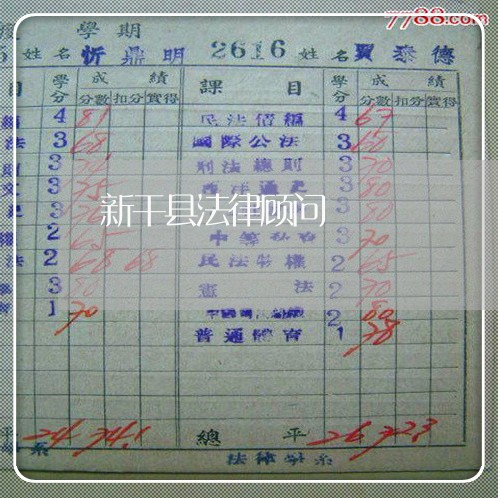 7788.com
學期
姓名 忻鼎明 2616 姓名 賈泰德
目 學分 成績 課目 學分 成績
分數 扣分 實得 分數 扣分 實得
4 81 民法債編 4 67
法 3 68 國際公法 3 60
3 刑法總則 3 70
3 75 西洋通史 3 80
3 3 80
新干县法律顾问
2 65 3 70
法 2 68 68 民法物權 2 65
3 80 憲法 2 70
1 70 2 80
普通體育 1 78
平 24 74.1 總平 26 72.3
系 法律學系